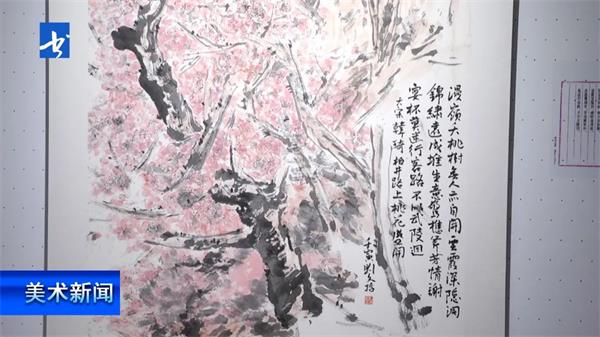 书
漫嶺大桃樹無人亦自開雲霞深隱洞
錦繡遠成堆生意驚樵斧芳情謝
宴杯莫迷行客路不似武陵迴
大宋韓琦柏井路上桃花盛開
壬寅劉
美术新闻